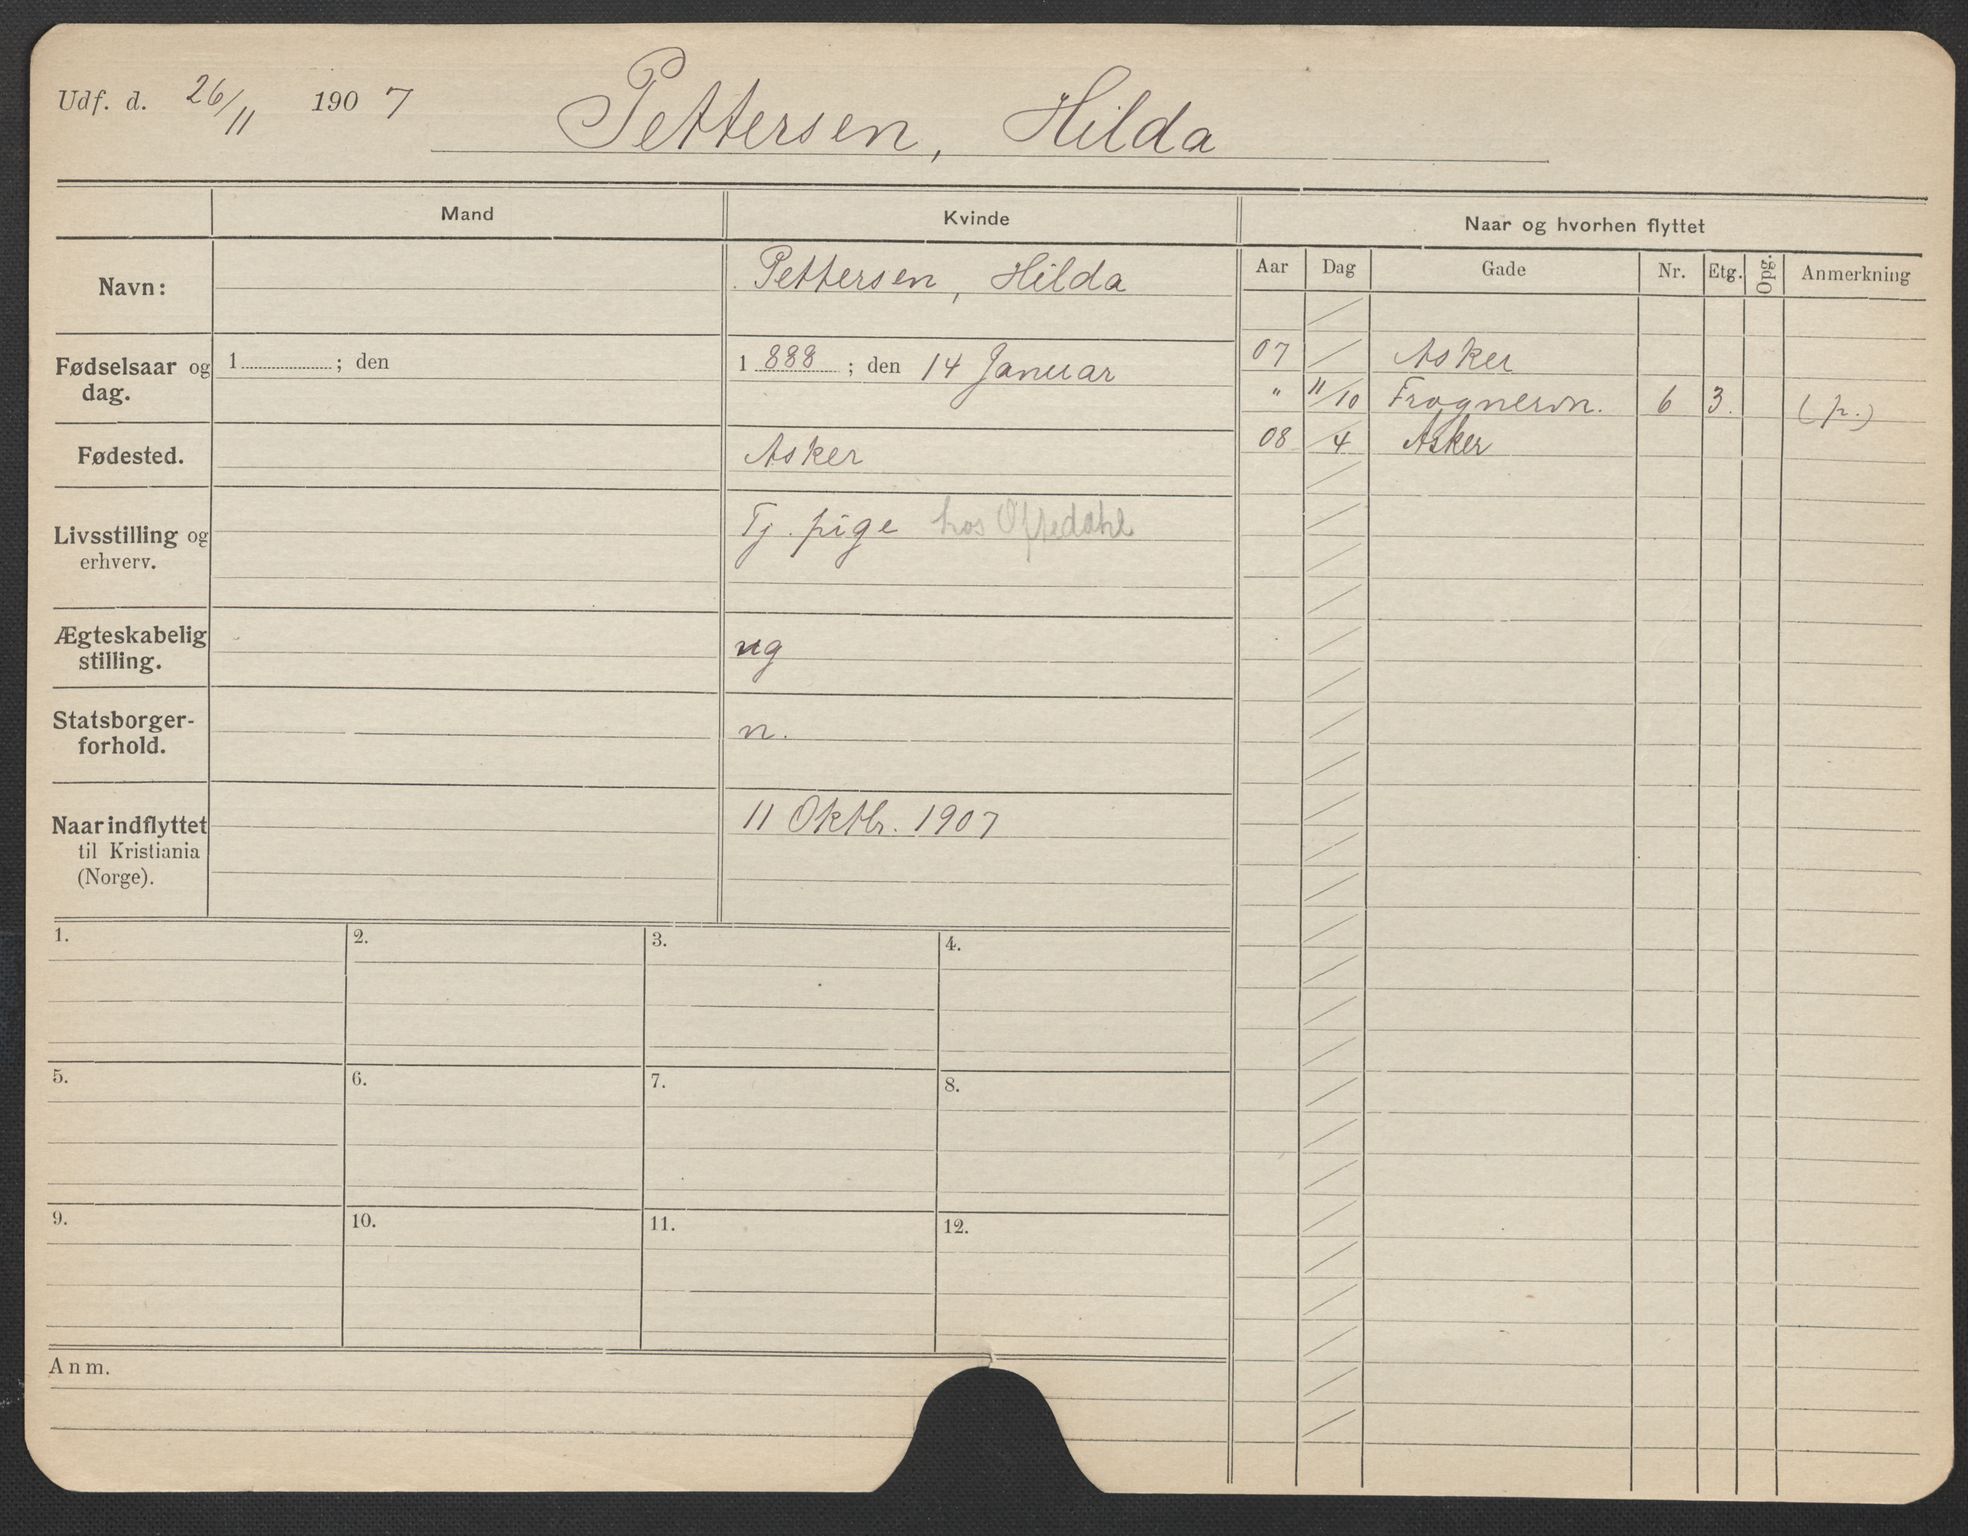 Udf. d. 26/11 1907 Pettersen, Hilda
Mand Kvinde Naar og hvorhen flyttet
Aar Dag Gade Nr. Etg. Opg. Anmerkning
Navn: Pettersen, Hilda
Fødselsaar og dag. 1 ; den 1888 ; den 14 Januar
Fødested. Asker
Livsstilling og erhverv. Tj. pige hos Oftedahl
Ægteskabelig stilling. ug
Statsborgerforhold. n.
Naar indflyttet til Kristiania (Norge). 11 Oktbr. 1907
07 / Asker
" 11/10 Frognervn. 6 3. (p.)
08 /4 Asker
1. 2. 3. 4.
5. 6. 7. 8.
9. 10. 11. 12.
Anm.